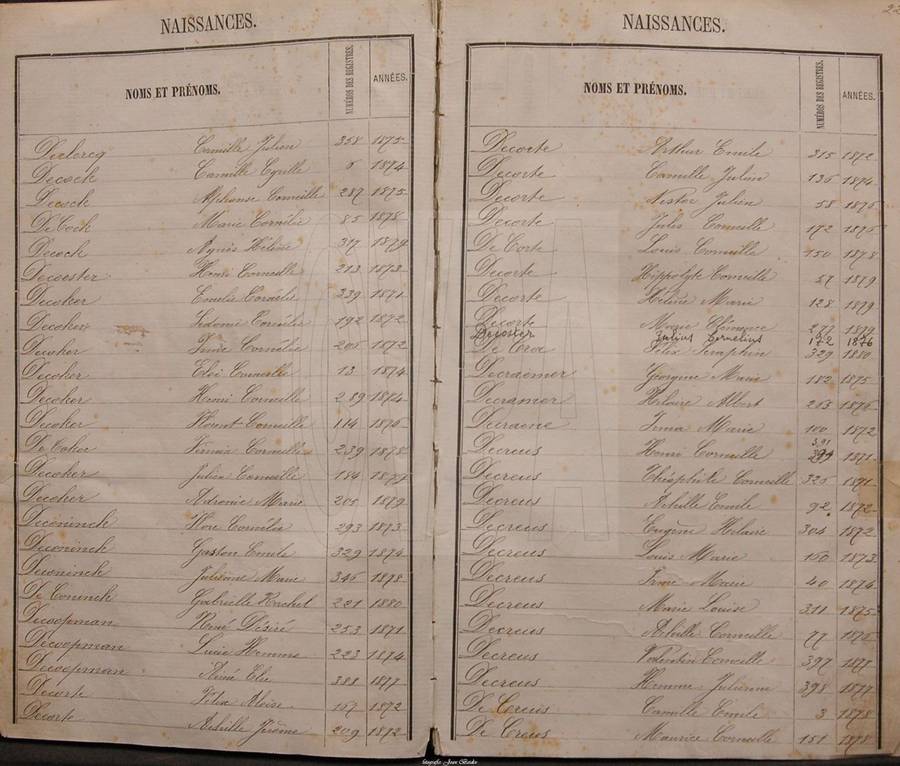 NAISSANCES.
NOMS ET PRÉNOMS. NUMÉROS DES REGISTRES. ANNÉES.
Declercq Camille Julien 358 1875
Decock Camille Cyrille 6 1874
Decock Alphonse Corneille 287 1875
De Cock Marie Cornélie 85 1878
Decock Agnès Hélène 317 1879
Decoester Henri Corneille 213 1873
Decoker Emelie Coralie 239 1871
Decoker Sidonie Cornélie 192 1872
Decoker Irma Cornélie 205 1872
Decoker Eloi Corneille 13 1874
Decoker Henri Corneille 289 1874
Decoker Corneille 114 1876
De Coker Firmin Corneille 239 1878
Decoker Julien Corneille 184 1879
Decoker Adronie Marie 205 1879
Deconinck Flore Cornélie 293 1873
Deconinck Gaston Emile 329 1874
Deconinck Julienne Marie 346 1878
De Coninck Gabrielle Rachel 221 1880
Decoopman René Désiré 253 1871
Decoopman Lucie Hemma 223 1874
Decoopman Aimé Elie 388 1877
Decorte Félix Aloïse 167 1872
Decorte Achille Jérôme 209 1872
NAISSANCES. 22
NOMS ET PRÉNOMS. NUMÉROS DES REGISTRES. ANNÉES.
Decorte Arthur Emile 315 1872
Decorte Camille Julien 136 1874
Decorte Nestor Julien 58 1876
Decorte Jules Corneille 172 1876
De Corte Louis Corneille 150 1878
Decorte Hippolyte Corneille 57 1879
Decorte Hélène Marie 128 1879
Decorte Marie Clémence 277 1879
Decoster Julius Cornelius 172 1876
De Croe Félix Seraphin 329 1880
Decraemer Georgine Marie 182 1875
Decramer Hilaire Albert 253 1876
Decraene Irma Marie 100 1872
Decreus Henri Corneille 391 1871
Decreus Théophile Corneille 326 1871
Decreus Achille Emile 92 1872
Decreus Eugène Hilaire 304 1872
Decreus Louis Marie 160 1873
Decreus Irma Marie 40 1874
Decreus Marie Louise 311 1875
Decreus Achille Corneille 77 1876
Decreus Valentin Corneille 397 1877
Decreus Hemma Julienne 398 1877
De Creus Camille Emile 3 1878
De Creus Maurice Corneille 151 1878